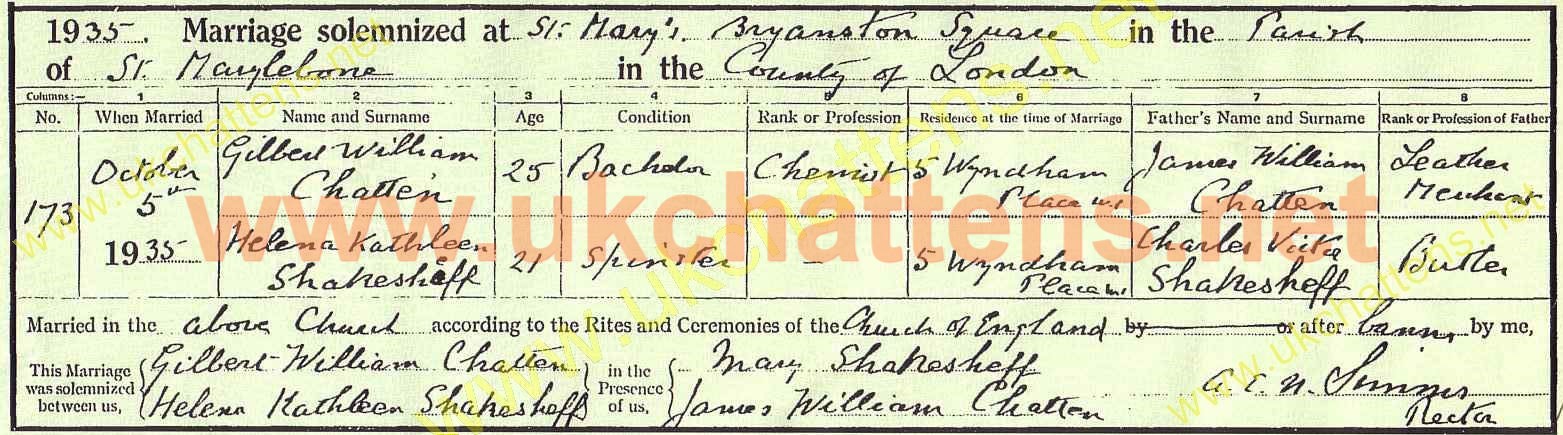 1935. Marriage solemnized at St. Mary's, Bryanston Square in the Parish
of St. Marylebone in the County of London
Columns:— 1 2 3 4 5 6 7 8
No. When Married Name and Surname Age Condition Rank or Profession Residence at the time of Marriage Father's Name and Surname Rank or Profession of Father
173 October 5th 1935 Gilbert William Chatten 25 Bachelor Chemist 5 Wyndham Place W1 James William Chatten Leather Merchant
Helena Kathleen Shakesheff 21 Spinster – 5 Wyndham Place W1 Charles Shakesheff Butler
Married in the above Church according to the Rites and Ceremonies of the Church of England by or after banns by me,
This Marriage was solemnized between us, Gilbert William Chatten in the Presence of us, Mary Shakesheff
Helena Kathleen Shakesheff James William Chatten
Rector
www.ukchattens.net
www.ukchattens.net
www.ukchattens.net
www.ukchattens.net
www.ukchattens.net